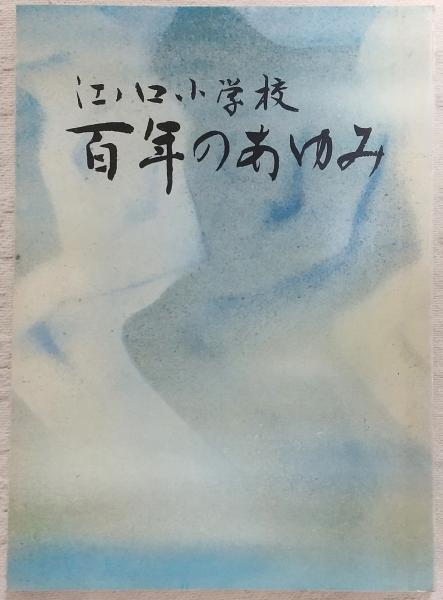 江ノ口小学校
百年のあゆみ